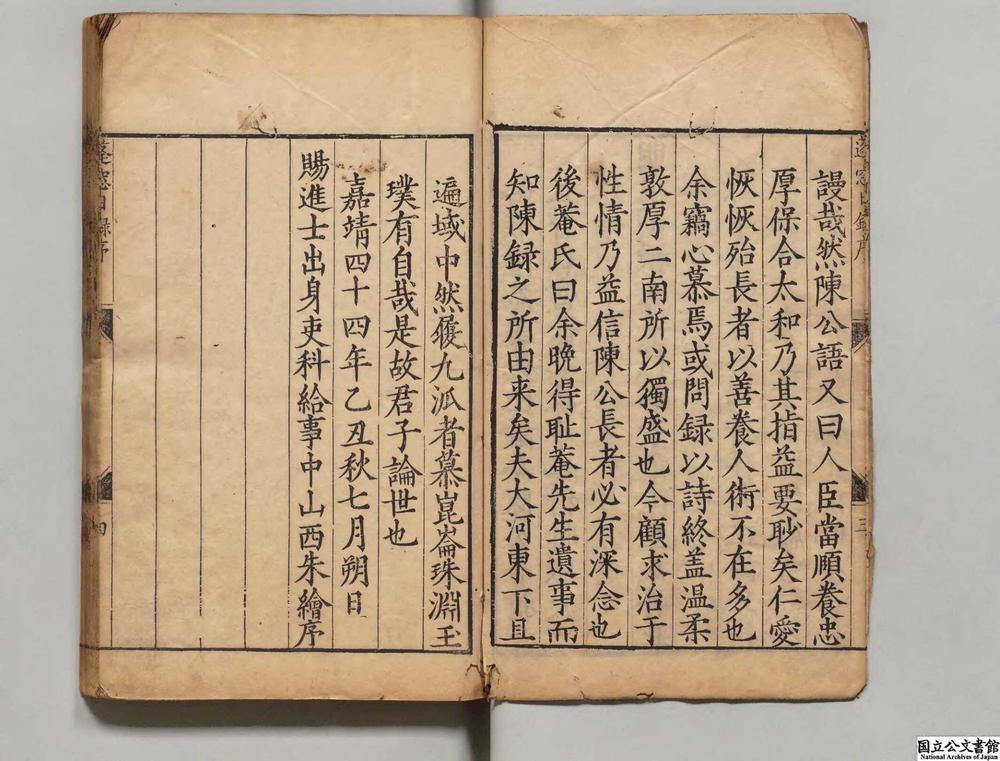 蓬窓日録序
三
謾哉然陳公語又曰人臣當順養忠
厚保合太和乃其指益要眇矣仁愛
恢恢殆長者以善養人術不在多也
余竊心慕焉或問録以詩終盖温柔
敦厚二南所以獨盛也今顧求治于
性情乃益信陳公長者必有深念也
後菴氏曰余晩得耻菴先生遺事而
知陳録之所由来矣夫大河東下且
遍域中然履九泒者慕崑崙珠淵玉
璞有自哉是故君子論世也
嘉靖四十四年乙丑秋七月朔日
賜進士出身吏科給事中山西朱繪序
蓬窓日録序
四
国立公文書館
National Archives of Japan